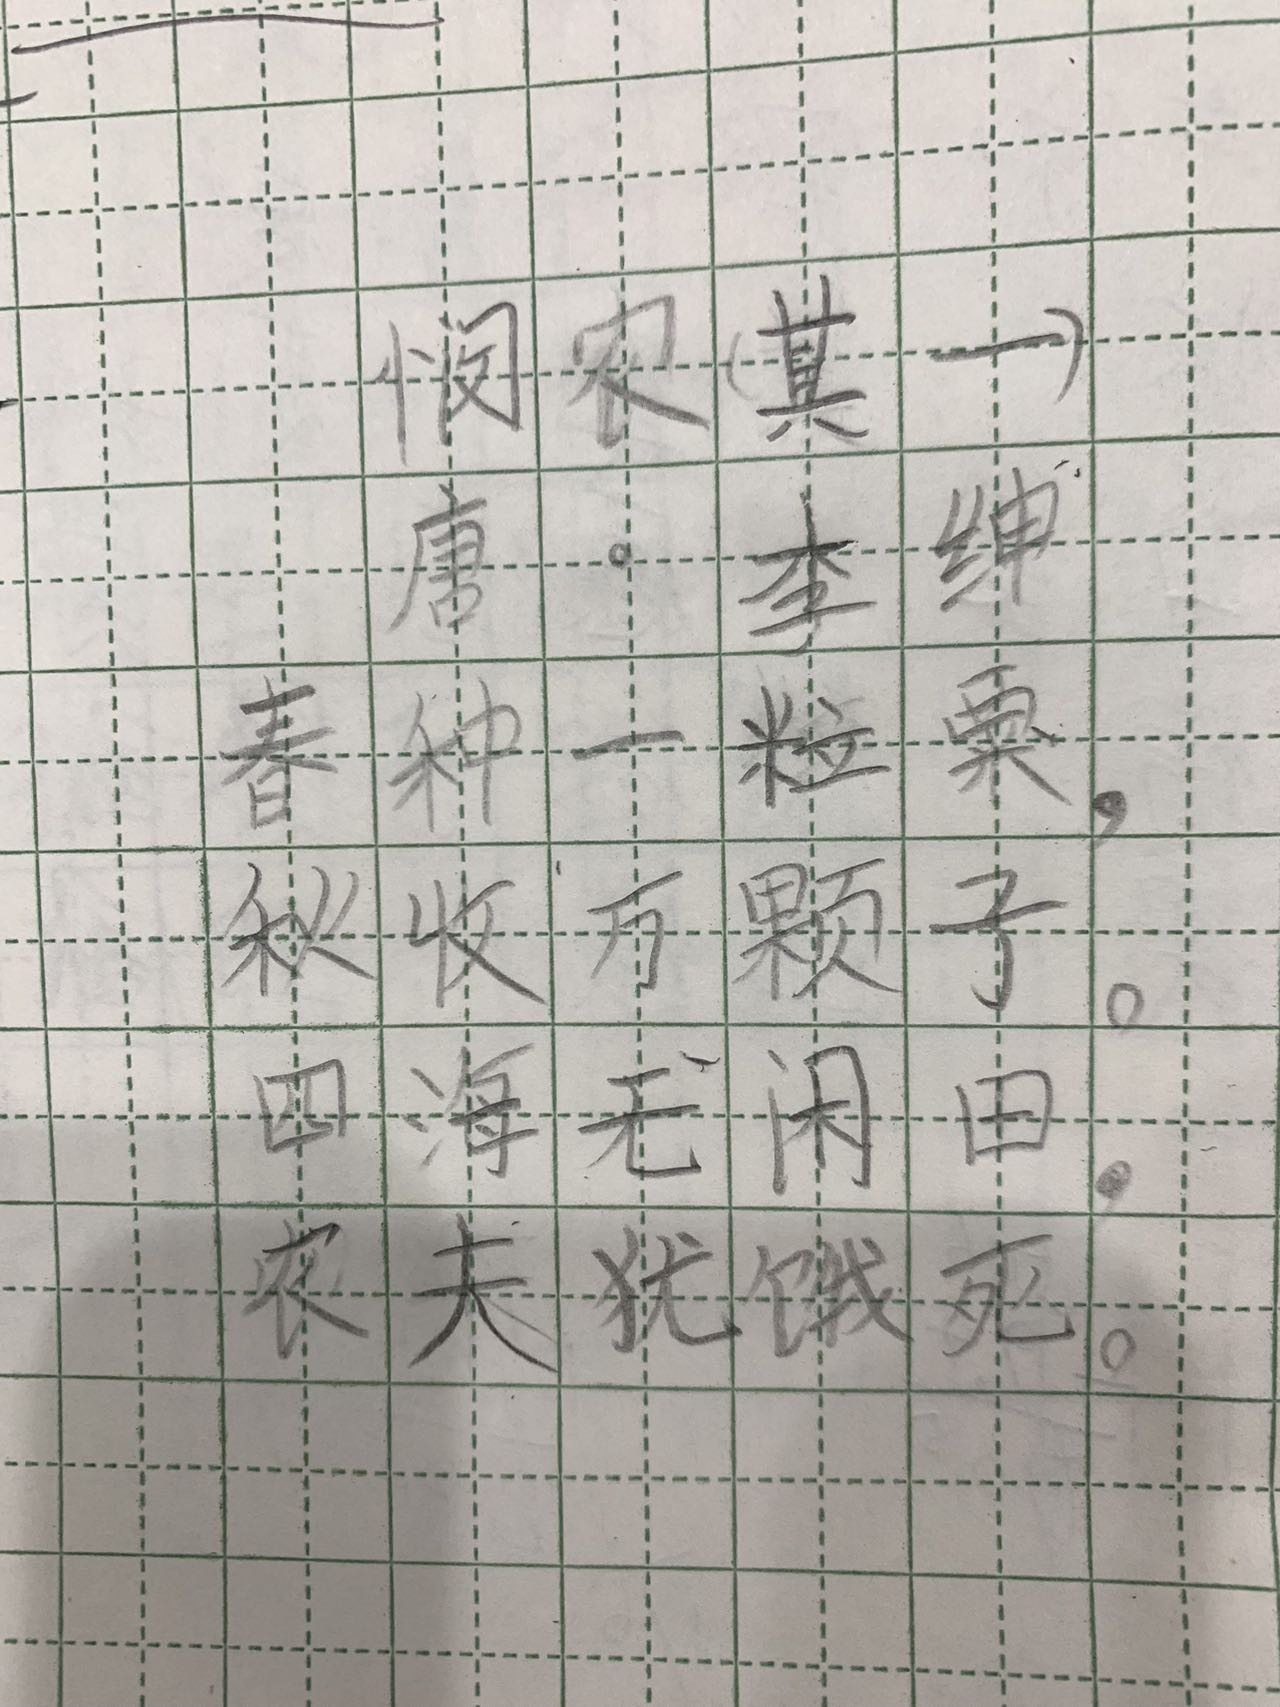 悯农(其一)
唐。李绅
春种一粒粟,
秋收万颗子。
四海无闲田,
农夫犹饿死。